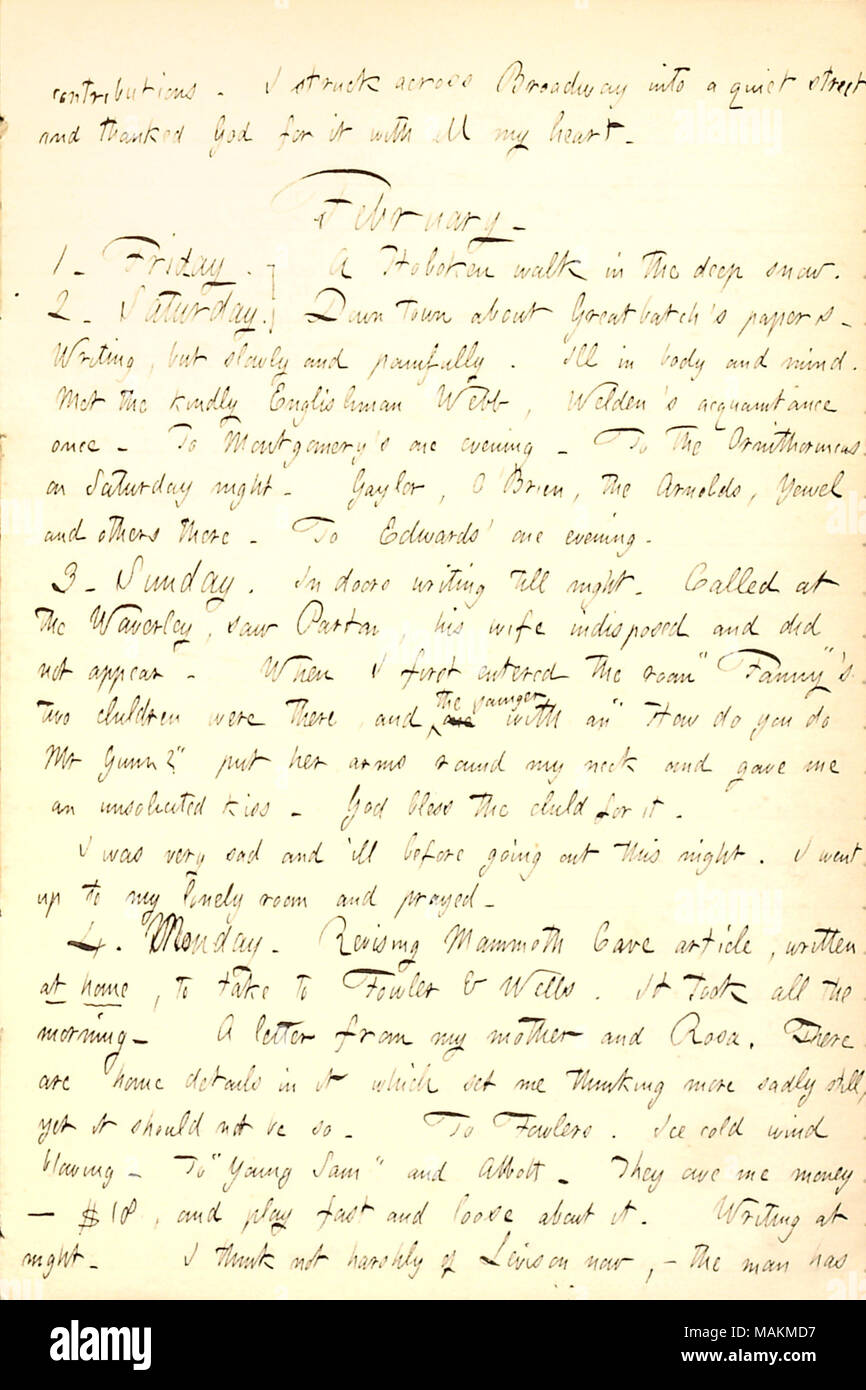 contributions. I struck across Broadway into a quiet street
and thanked God for it with all my heart.
February.
1. Friday. A Hoboken walk in the deep snow.
2. Saturday. Down town about Greatbatch's papers.
Writing, but slowly and painfully. Ill in body and mind.
Met the kindly Englishman Webb, Welden's acquaintance
once. To Montgomery's one evening. To the Ornithorincus
on Saturday night. Gayler, O'Brien, the Arnolds, Yewel
and others there. To Edwards' one evening.
3. Sunday. In doors writing till night. Called at
the Waverley, saw Parton, his wife indisposed and did
not appear. When I first entered the room "Fanny"'s
two children were there, and the younger with an "How do you do
Mr Gunn?" put her arms round my neck and gave me
an unsolicited kiss. God bless the child for it.
I was very sad and ill before going out this night. I went
up to my lonely room and prayed.
4. Monday. Revising Mammoth Cave article, written
at home, to take to Fowler & Wells. It took all the
morning. A letter from my mother and Rosa. There
are home details in it which set me thinking more sadly still,
yet it should not be so. To Fowlers. Ice cold wind
blowing. To "Young Sam" and Abbott. They owe me money
— $18, and play fast and loose about it. Writing at
night. I think not harshly of Levison now, — the man has
alamy
Image ID: MAKMD7
www.alamy.com